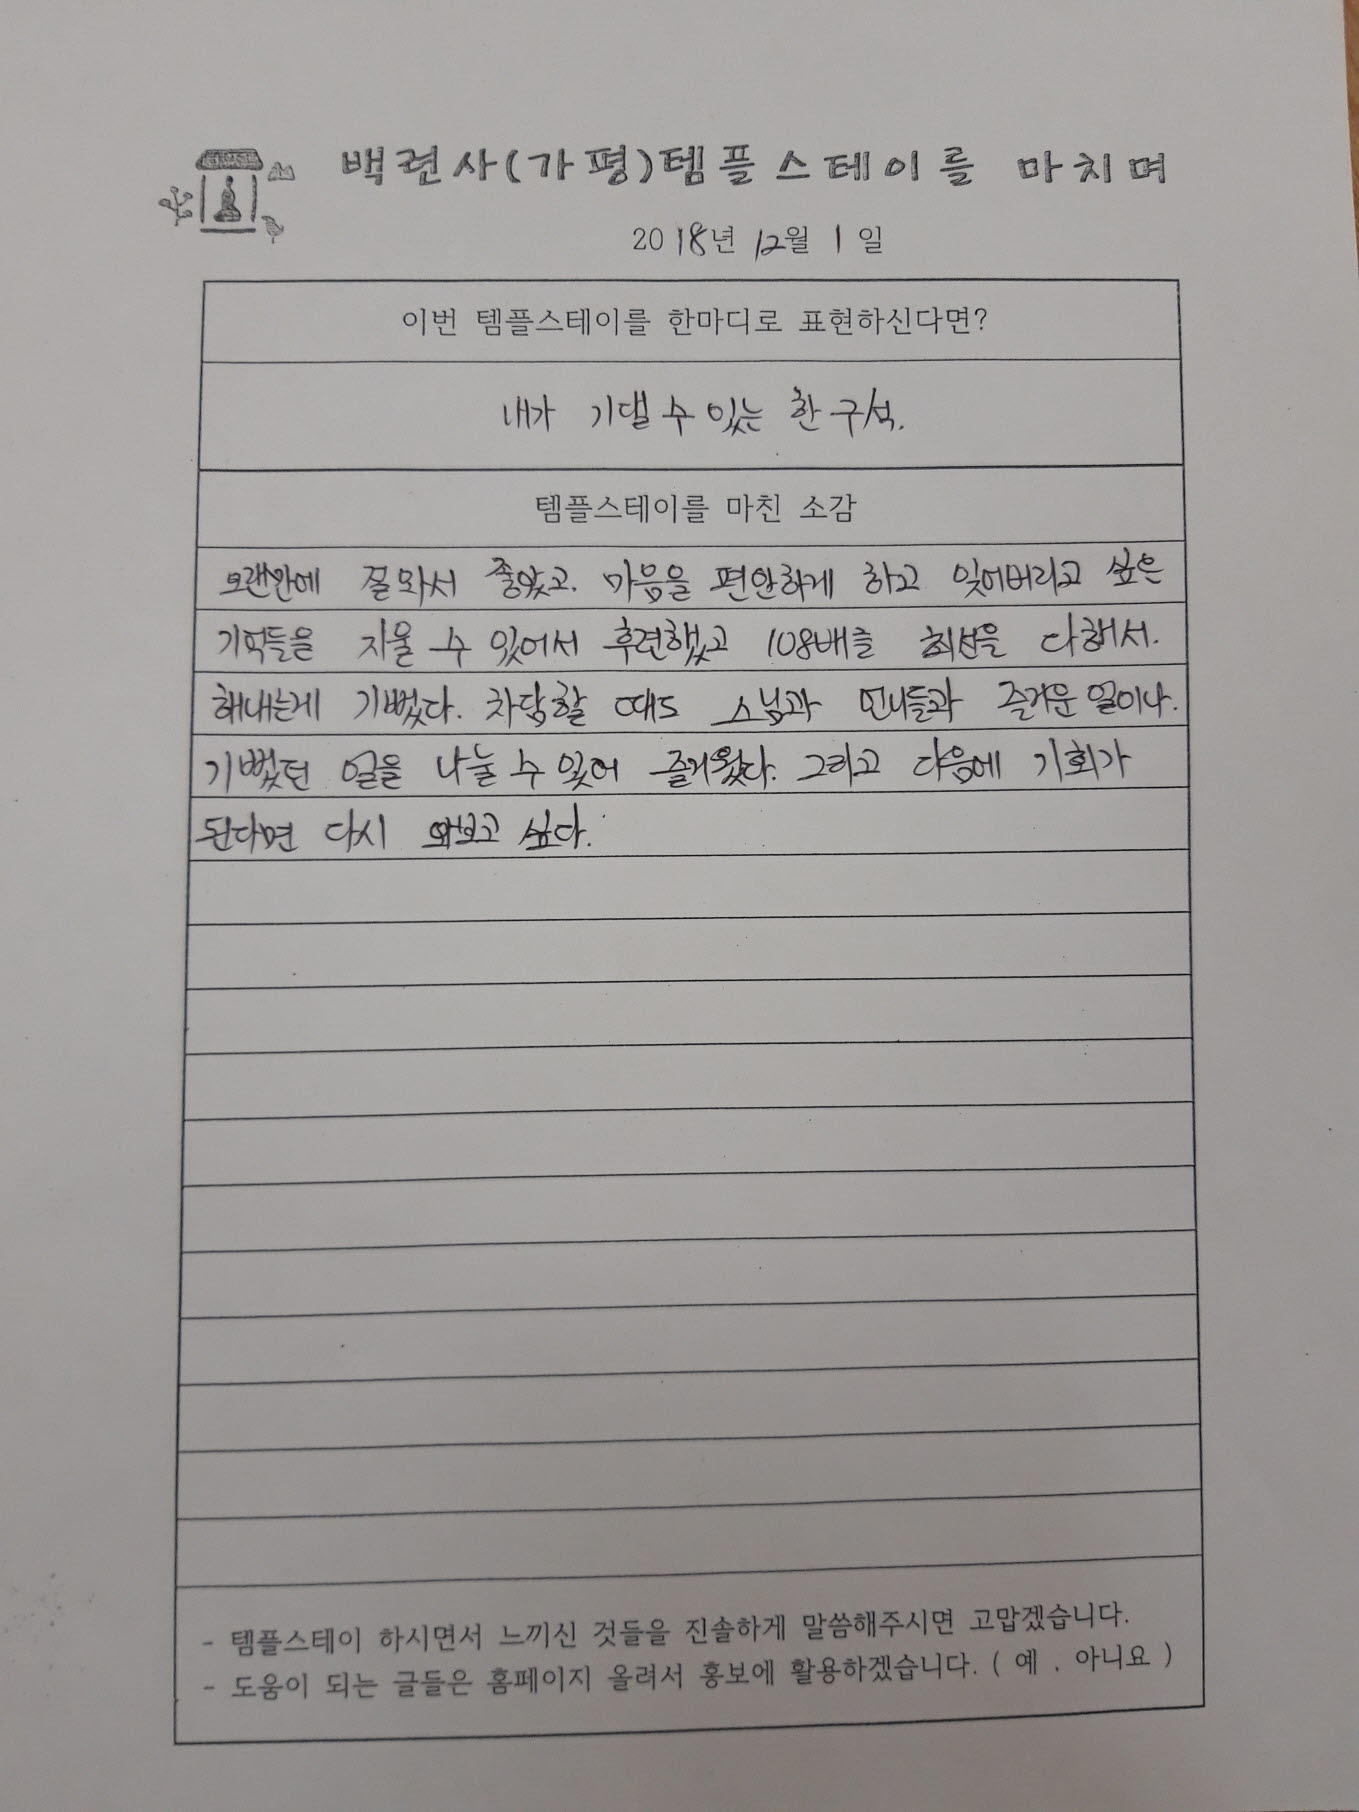 백련사(가평)템플스테이를 마치며
2018년 12월 1일
이번 템플스테이를 한마디로 표현하신다면?
내가 기댈 수 있는 한 구석.
템플스테이를 마친 소감
오랜만에 절 와서 좋았고. 마음을 편안하게 하고 잊어버리고 싶은
기억들을 지울 수 있어서 후련했고 108배를 최선을 다해서.
해내는게 기뻤다. 차담할 때도 스님과 언니들과 즐거운 일이나.
기뻤던 일을 나눌 수 있어 즐거웠다. 그리고 다음에 기회가
된다면 다시 와보고 싶다.
- 템플스테이 하시면서 느끼신 것들을 진솔하게 말씀해주시면 고맙겠습니다.
- 도움이 되는 글들은 홈페이지 올려서 홍보에 활용하겠습니다. ( 예 . 아니요 )